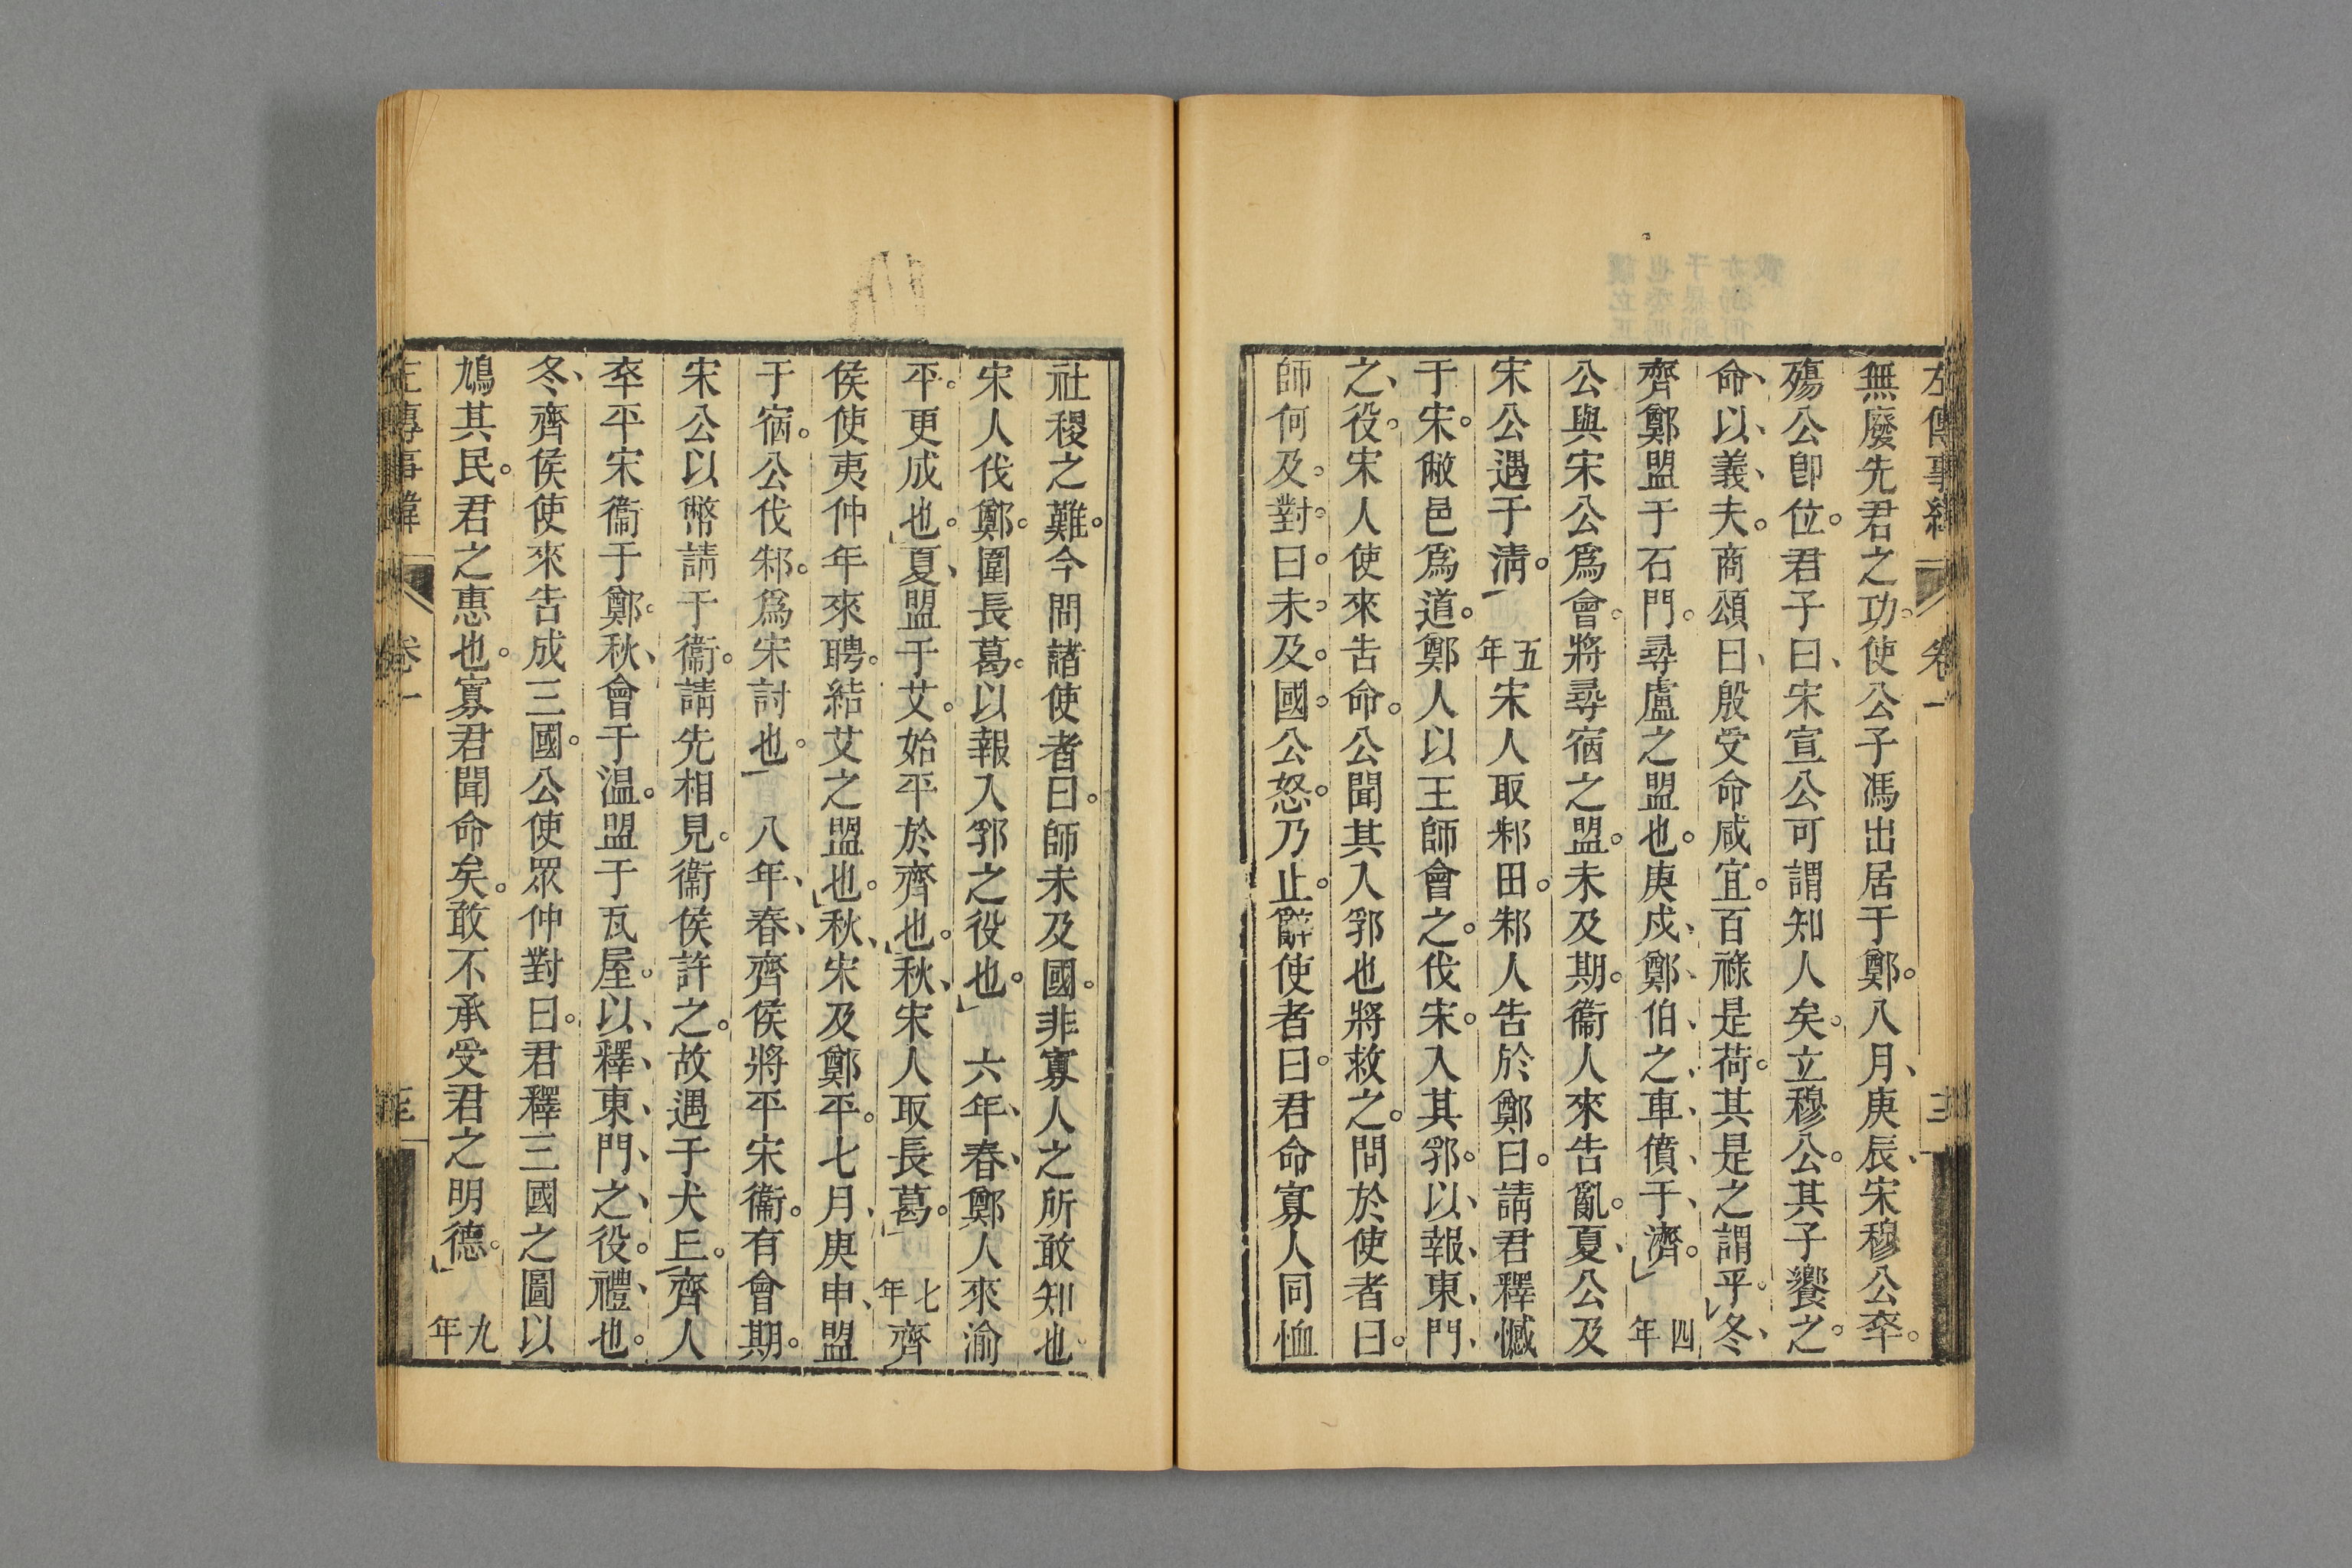 左傳事緯 卷一
無廢先君之功。使公子馮出居于鄭。八月、庚辰、宋穆公卒。
殤公卽位。君子曰、宋宣公可謂知人矣。立穆公。其子饗之。
命、以、義、夫。商頌曰、殷受命咸宜。百祿是荷。其是之謂乎。冬、
齊鄭盟于石門。尋盧之盟也。庚戍、鄭、伯、之、車、僨、于、濟。 四年
公與宋公爲會。將尋宿之盟。未及期。衞人來告亂。夏、公及
宋公遇于淸。 五年宋人取邾田。邾人告於鄭曰。請君釋憾
于宋。敝邑爲道。鄭人以王師會之。伐宋。入其郛。以、報、東、門、
之、役。宋人使來告命。公聞其入郛也將救之。問於使者曰。
師何及。對。曰。未。及。國。公怒。乃止。辭使者曰。君命寡人同恤
社稷之難。今問諸使者曰。師未及國。非寡人之所敢知也。
宋人伐鄭。圍長葛。以報入郛之役也。 六年、春、鄭人來渝
平。更成也。夏、盟于艾。始平於齊也。秋、宋人取長葛。 七年齊
侯使夷仲年來聘。結艾之盟也。秋、宋及鄭平。七月、庚申、盟
于宿。公伐邾。爲宋討也。 八年、春、齊侯將平宋衞。有會期。
宋公以幣請于衞。請先相見。衞侯許之。故遇于犬丘。齊人
卒平宋衞于鄭。秋、會于溫。盟于瓦屋。以、釋、東、門、之、役。禮、也。
冬、齊侯使來告成三國。公使眾仲對曰。君釋三國之圖以
鳩其民。君之惠也。寡君聞命矣。敢不承受君之明德。 九年
左傳事緯 卷一